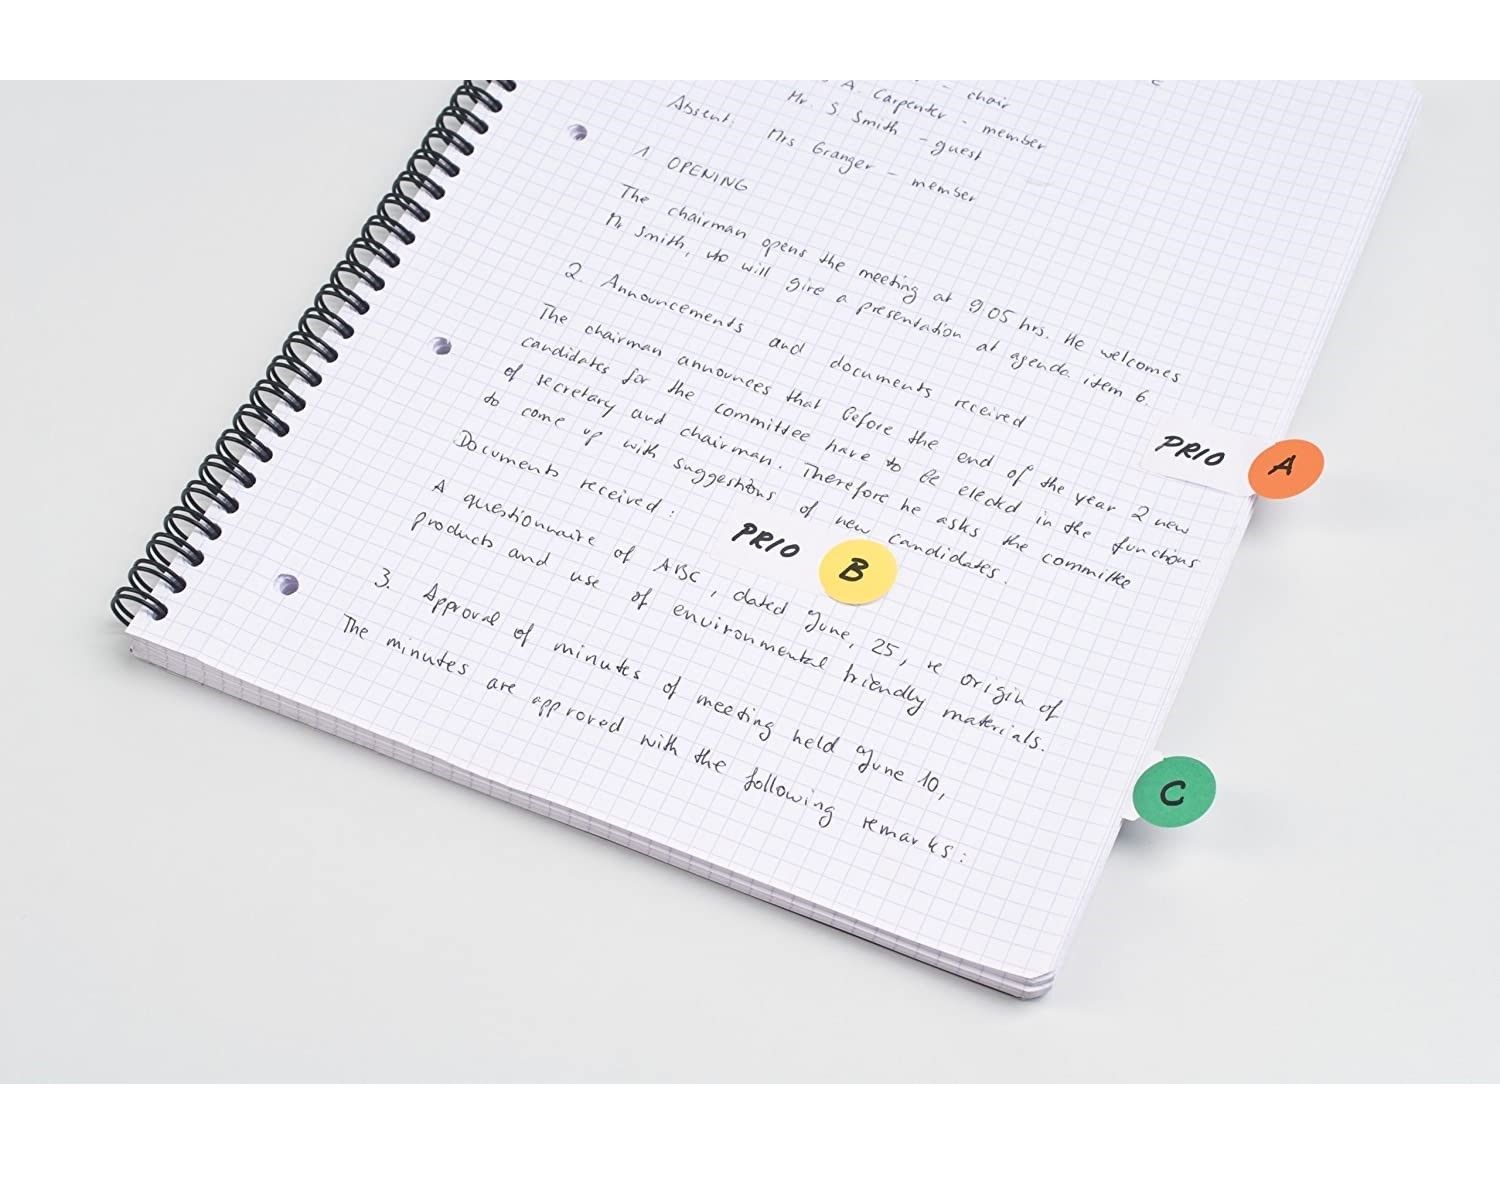 - chair
A. Carpenter - member
Mr. S. Smith - guest
Absent: Mrs Granger - member
1. OPENING
The chairman opens the meeting at 9.05 hrs. He welcomes
Mr Smith, who will give a presentation at agenda item 6.
2. Announcements and documents received
The chairman announces that before the end of the year 2 new
candidates for the committee have to be elected in the functions
of secretary and chairman. Therefore he asks the committee
to come up with suggestions of new candidates.
PRIO A
Documents received:
PRIO B
A questionnaire of ABC, dated June, 25, re origin of
products and use of environmental friendly materials.
3. Approval of minutes of meeting held June 10,
The minutes are approved with the following remarks:
C